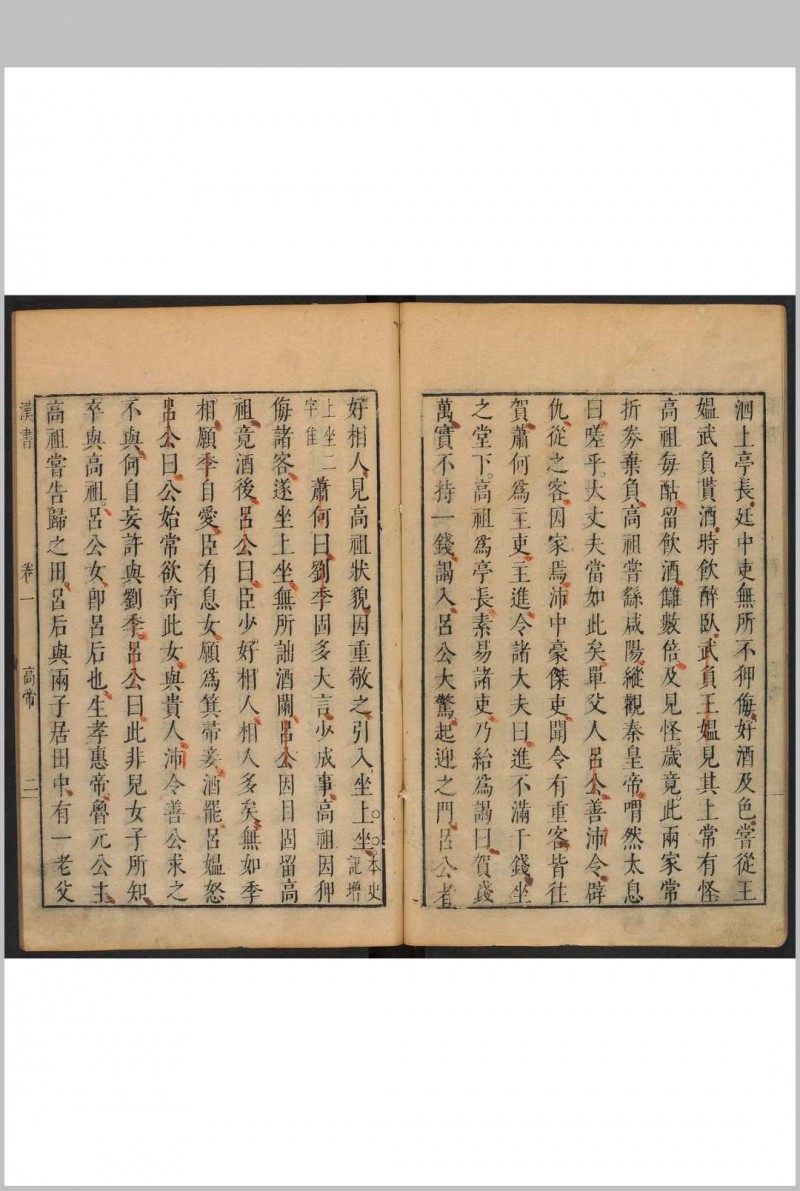 泗上亭長延中吏無所不狎侮好酒及色嘗從王
媼武負貰酒時飲醉臥武負王媼見其上常有怪
高祖每酤留飲酒讎數倍及見怪歲竟此兩家常
折券棄負高祖嘗繇咸陽縱觀秦皇帝喟然太息
曰嗟乎大丈夫當如此矣單父人呂公善沛令辟
仇從之客因家焉沛中豪傑吏聞令有重客皆往
賀蕭何為主吏主進令諸大夫曰進不滿千錢坐
之堂下高祖為亭長素易諸吏乃紿為謁曰賀錢
萬實不持一錢謁入呂公大驚起迎之門呂公者
好相人見高祖狀貌因重敬之引入坐上坐史記增本
上坐二字隹蕭何曰劉季固多大言少成事高祖因狎
侮諸客遂坐上坐無所詘酒闌呂公因目固留高
祖竟酒後呂公曰臣少好相人相人多矣無如季
相願季自愛臣有息女願為箕帚妾酒罷呂媼怒
呂公曰公始常欲奇此女與貴人沛令善公求之
不與何自妄許與劉季呂公曰此非兒女子所知
卒與高祖呂公女即呂后也生孝惠帝魯元公主
高祖嘗告歸之田呂后與兩子居田中有一老父
漢書 卷一 高帝 二